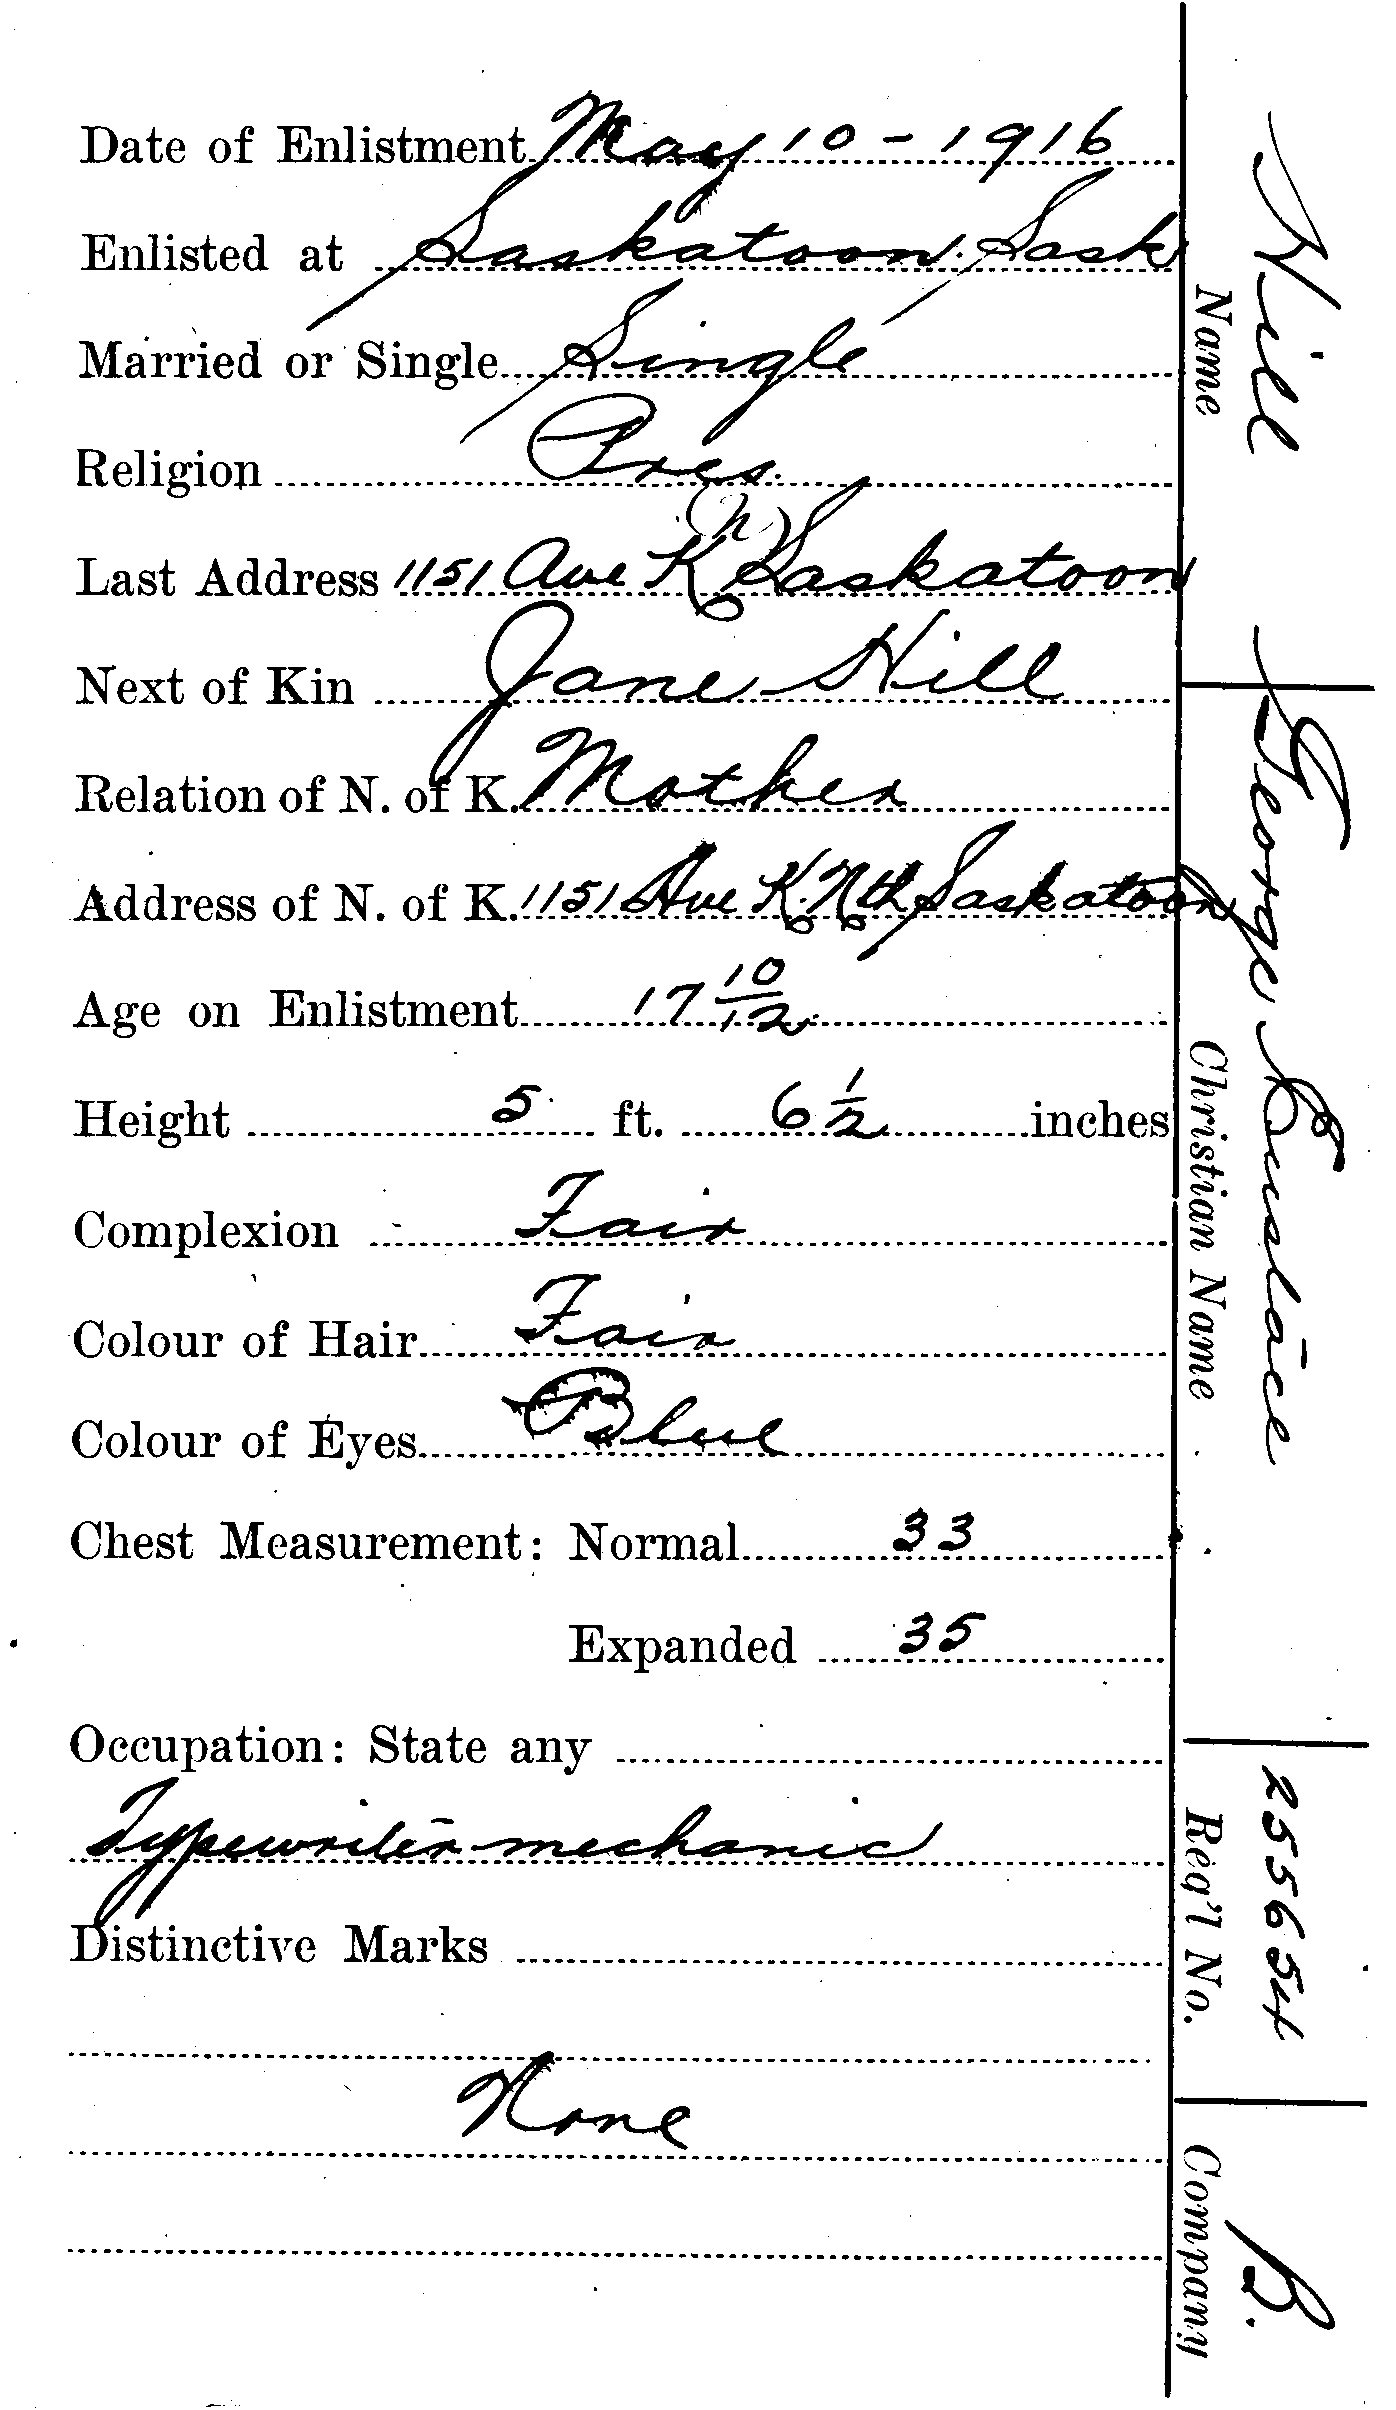 Date of Enlistment May 10 - 1916
Enlisted at Saskatoon. Sask
Married or Single Single
Religion Pres.
Last Address 1151 Ave K (N) Saskatoon
Next of Kin Jane Hill
Relation of N. of K. Mother
Address of N. of K. 1151 Ave K. Nth Saskatoon
Age on Enlistment 17 10/12
Height 5 ft. 6 1/2 inches
Complexion Fair
Colour of Hair Fair
Colour of Eyes Blue
Chest Measurement: Normal 33
Expanded 35
Occupation: State any
Typewriter mechanic
Distinctive Marks
None
Hill
Name
George Eustace
Christian Name
255654
Reg'l No.
B.
Company